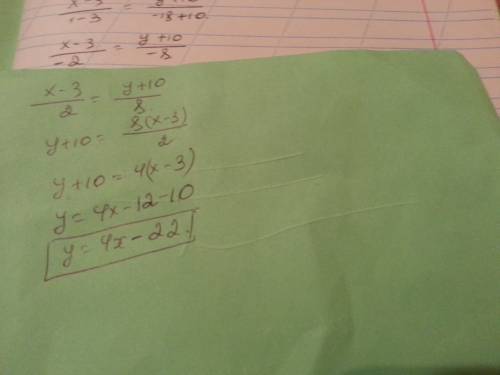 x-3/1-3 = y+10/-18+10
x-3/-2 = y+10/-8
x-3/2 = y+10/8
y+10 = 8(x-3)/2
y+10 = 4(x-3)
y = 4x-12-10
y = 4x-22.